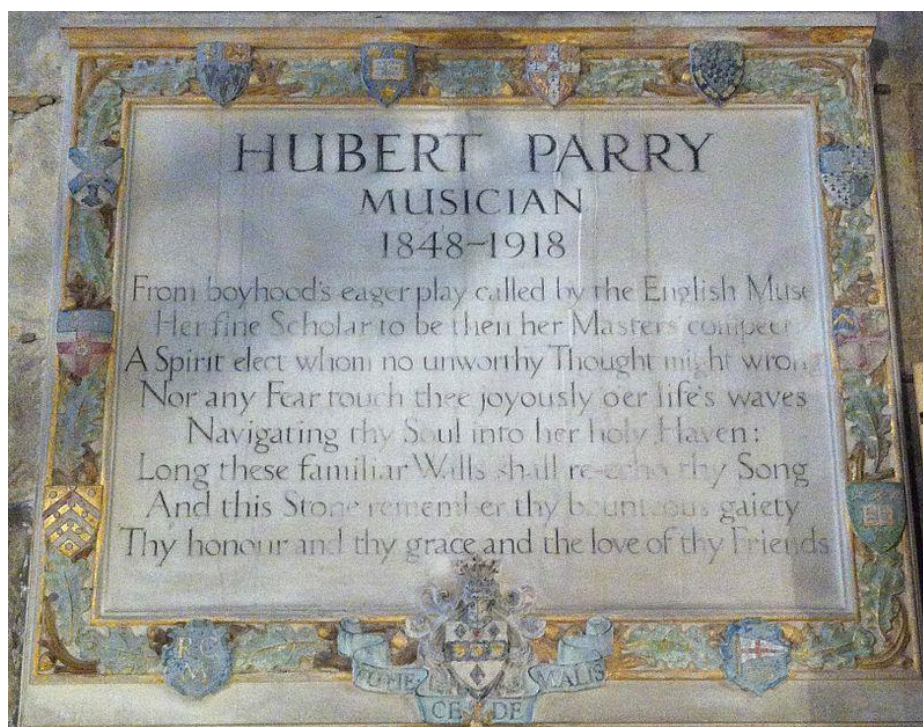 HUBERT PARRY
MUSICIAN
1848-1918
From boyhood's eager play called by the English Muse
Her fine Scholar to be then her Masters' compeer
A Spirit elect whom no unworthy Thought might wrong
Nor any Fear touch thee joyously o'er life's waves
Navigating thy Soul into her holy Haven:
Long these familiar Walls shall re-echo thy Song
And this Stone remember thy bounteous gaiety
Thy honour and thy grace and the love of thy Friends
RC
M
CEDE
MALIS